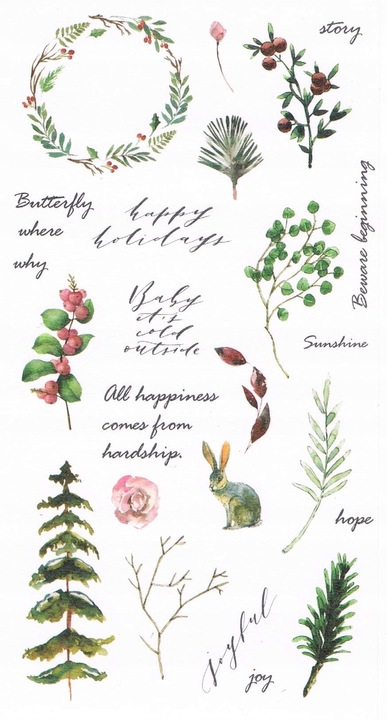 story
Butterfly
where
why
happy
holidays
Beware beginning
Baby
it's
cold
outside
Sunshine
All happiness
comes from
hardship.
hope
joyful
joy